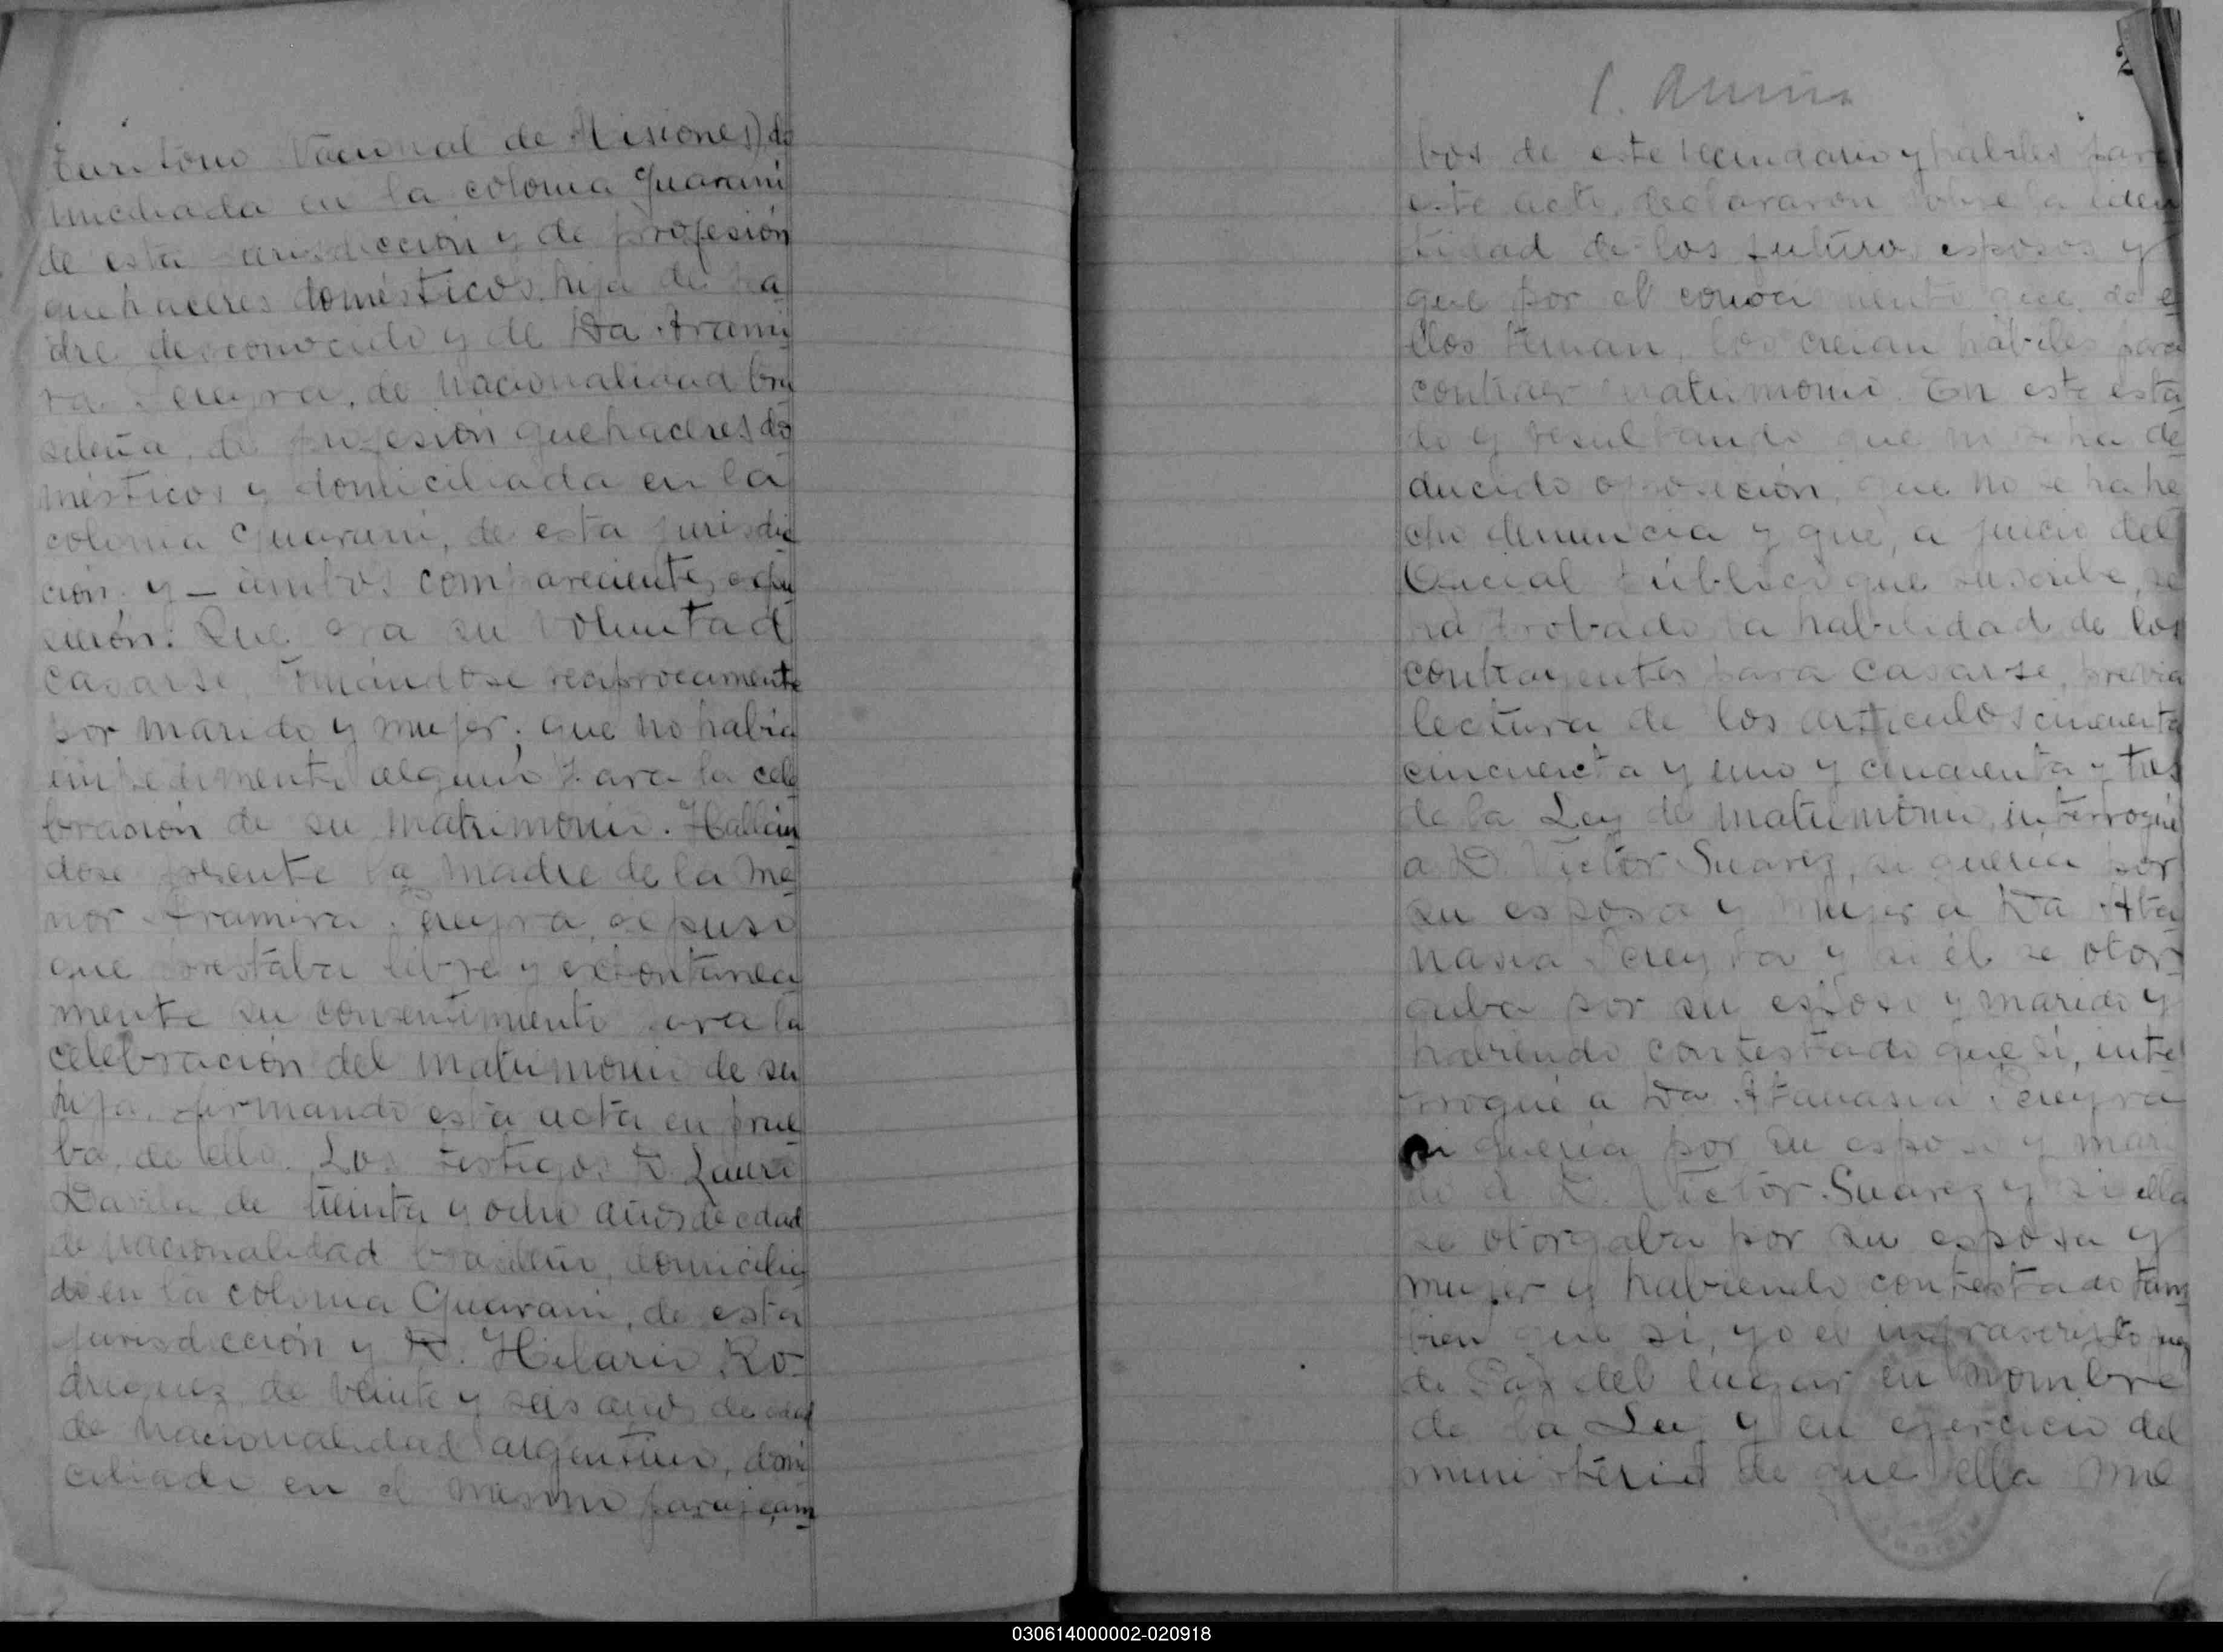 territorio Nacional de Misiones) do
miciliada en la colonia Guaraní
de esta jurisdicción y de profesión
quehaceres domésticos, hija de pa
dre desconocido y de Da Arami
ra Pereyra, de nacionalidad bra
sileña, de profesión quehaceres do
mésticos y domiciliada en la
colonia Guaraní, de esta jurisdic
ción y — ambos comparecientes expu
sieron: Que era su voluntad
casarse, tomándose recíprocamente
por marido y mujer; que no había
impedimento alguno para la cele
bración de su matrimonio. Hallán
dose presente la madre de la me
nor Aramira Pereyra, expuso
que prestaba libre y espontánea
mente su consentimiento para la
celebración del matrimonio de su
hija, firmando esta acta en prue
ba de ello. Los testigos D. Lauro
Davila de treinta y ocho años de edad
de nacionalidad brasileño, domicilia
do en la colonia Guaraní, de esta
jurisdicción y D. Hilario Ro-
driguez, de veinte y seis años de edad
de nacionalidad argentino, domi
ciliado en el mismo paraje, am
bos de este vecindario y hábiles para
este acto, declararon sobre la iden
tidad de los futuros esposos y
que por el conocimiento que de e
llos tenían, los creían hábiles para
contraer matrimonio. En este esta
do y resultando que no se ha de
ducido oposición, que no se ha he
cho denuncia y que, a juicio del
Oficial Público que suscribe, se
ha probado la habilidad de los
contrayentes para casarse, previa
lectura de los artículos cincuenta
cincuenta y uno y cincuenta y tres
de la Ley de matrimonio, interrogué
a D. Victor Suarez, si quería por
su esposa y mujer a Da Ata
nasia Pereyra y si él se otor
gaba por su esposo y marido y
habiendo contestado que sí, inte
rrogué a Da Atanasia Pereyra
si quería por su esposo y mari
do a D. Victor Suarez y si ella
se otorgaba por su esposa y
mujer y habiendo contestado tam
bien que sí, yo el infrascripto juez
de Paz del lugar en nombre
de la Ley y en ejercicio del
ministerio de que ella me
030614000002-020918